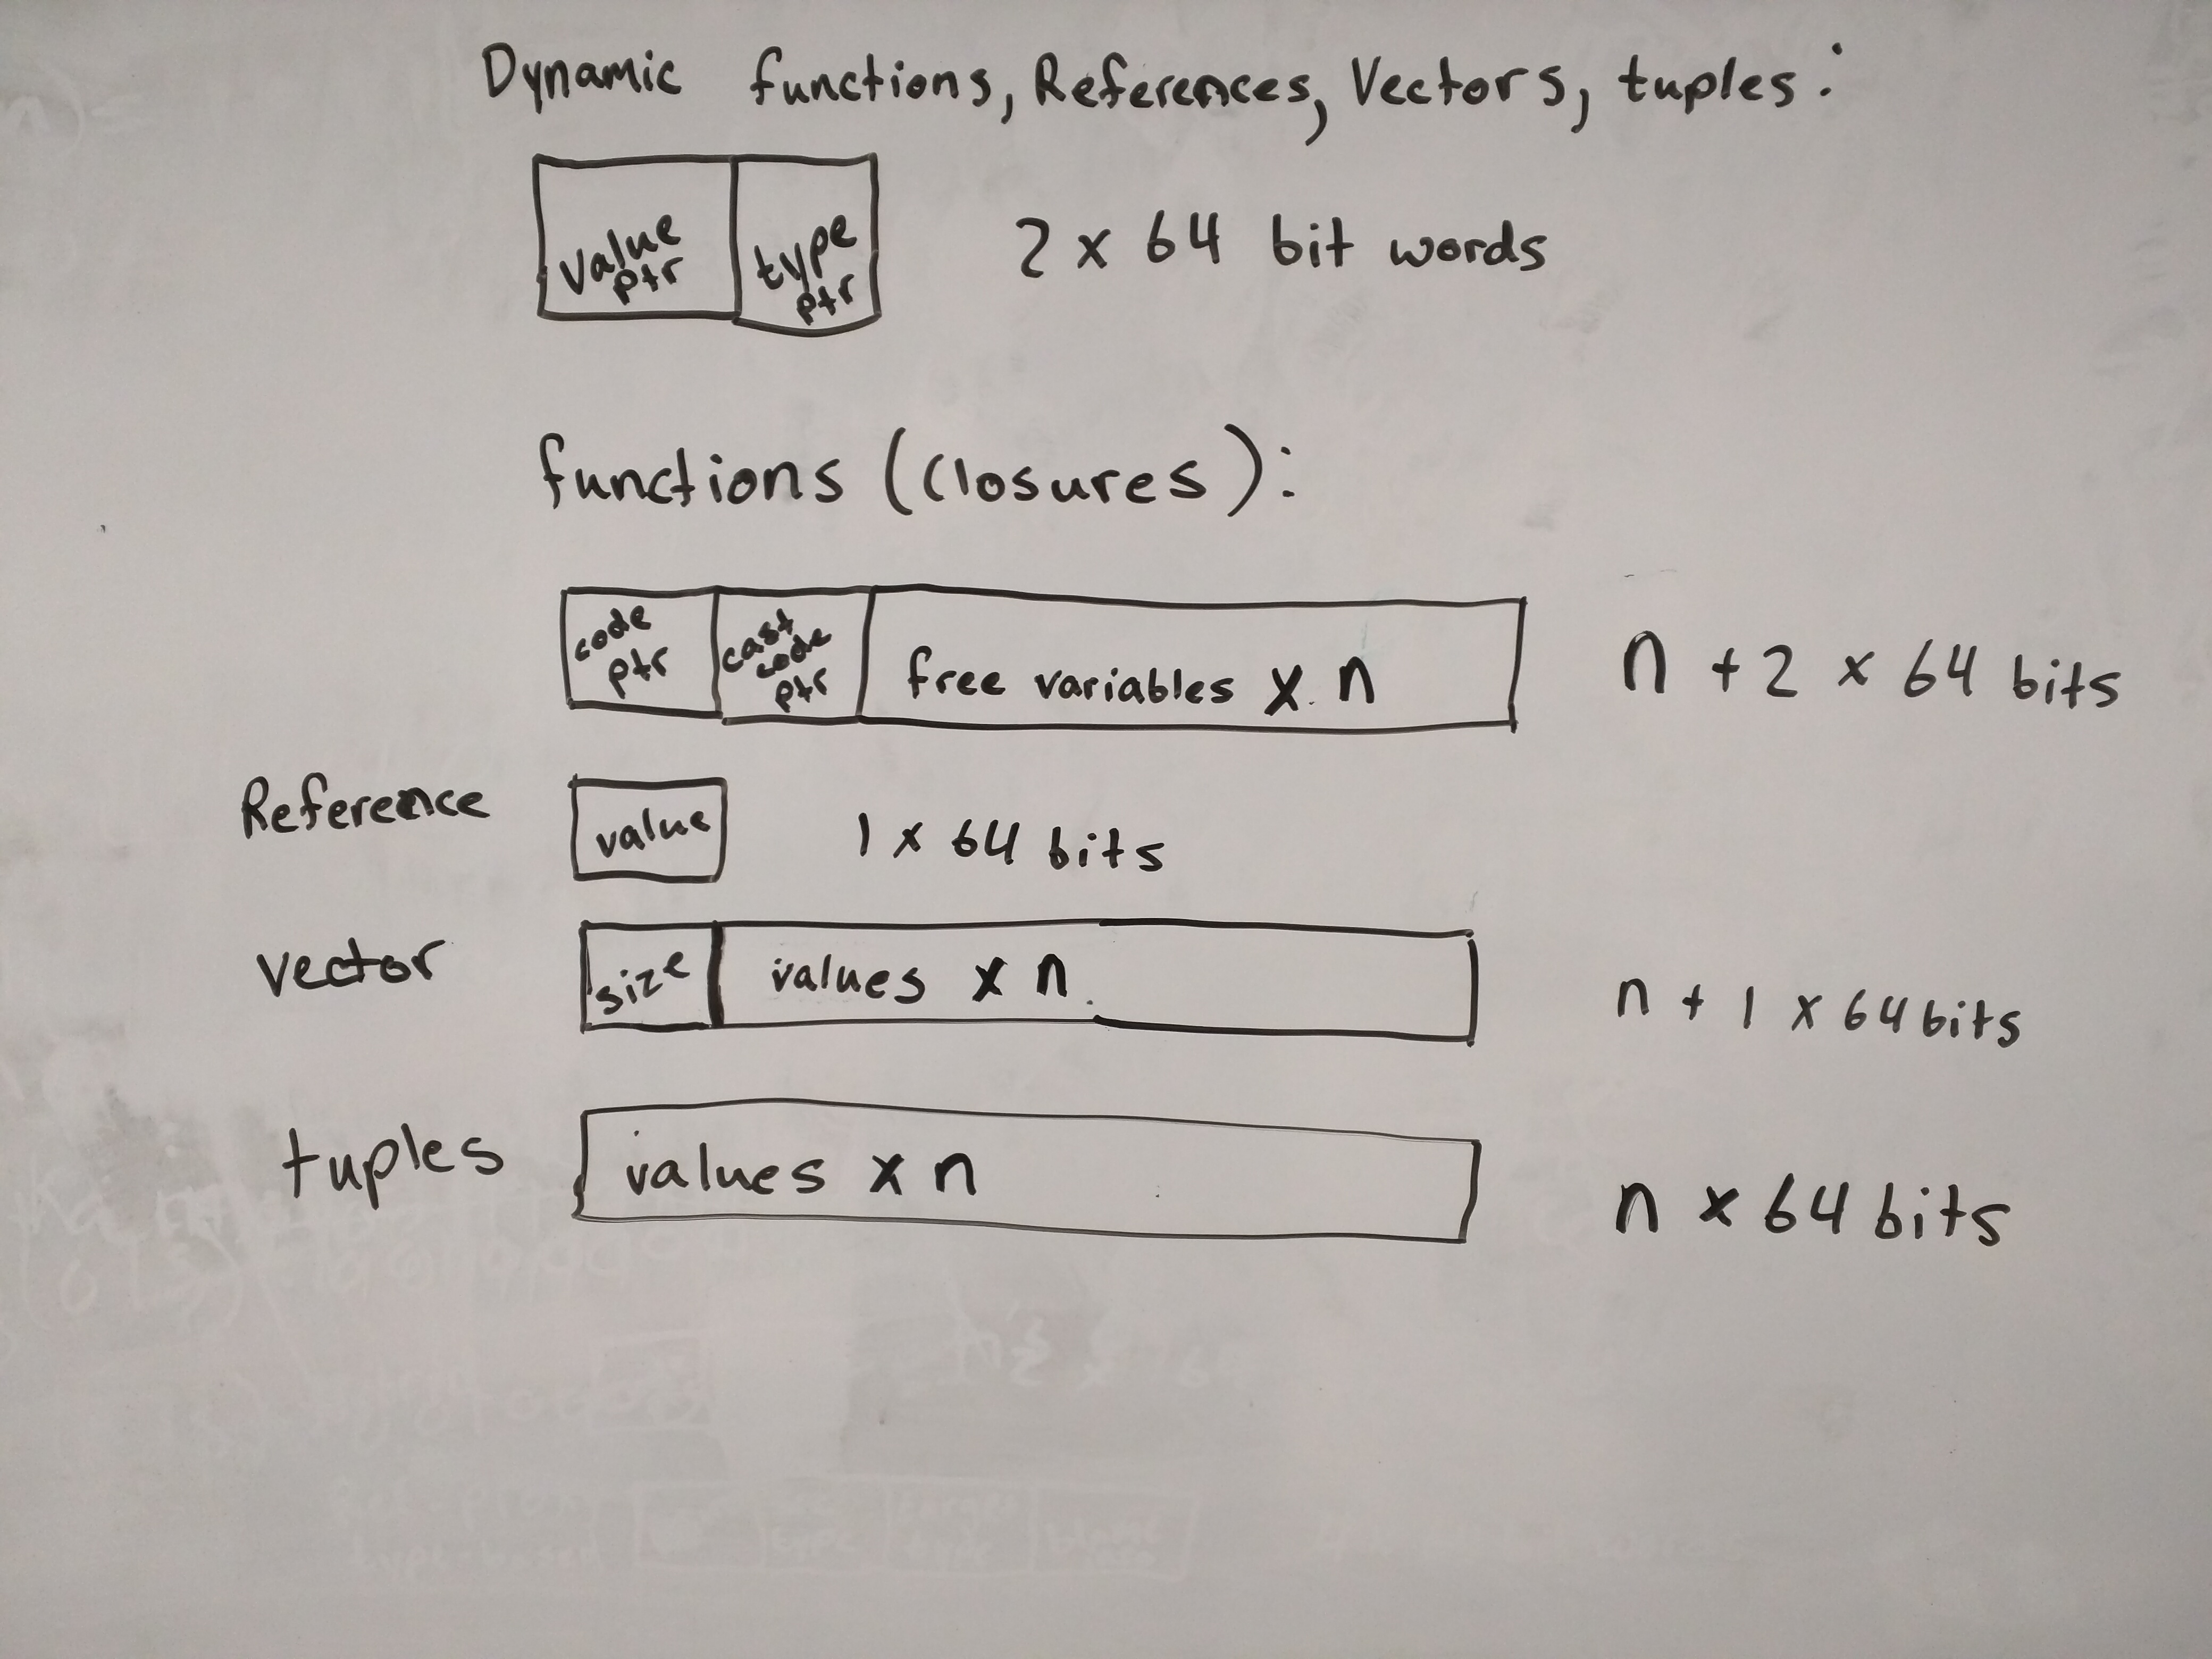 Dynamic functions, References, Vectors, tuples:
value ptr type ptr 2 x 64 bit words
functions (closures):
code ptr cast code ptr free variables x n n + 2 x 64 bits
Reference value 1 x 64 bits
vector size values x n n + 1 x 64 bits
tuples values x n n x 64 bits